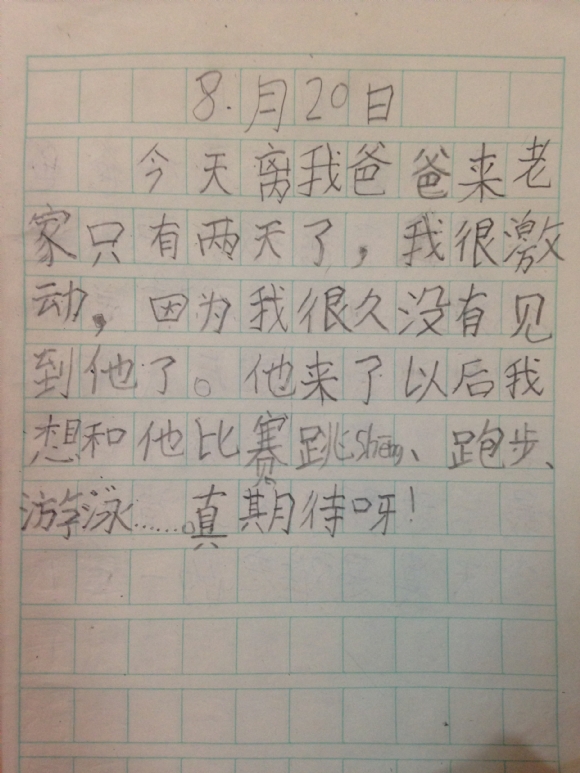 8.月20日
今天离我爸爸来老
家只有两天了，我很激
动，因为我很久没有见
到他了。他来了以后我
想和他比赛跳shéng、跑步、
游泳……。真期待呀！